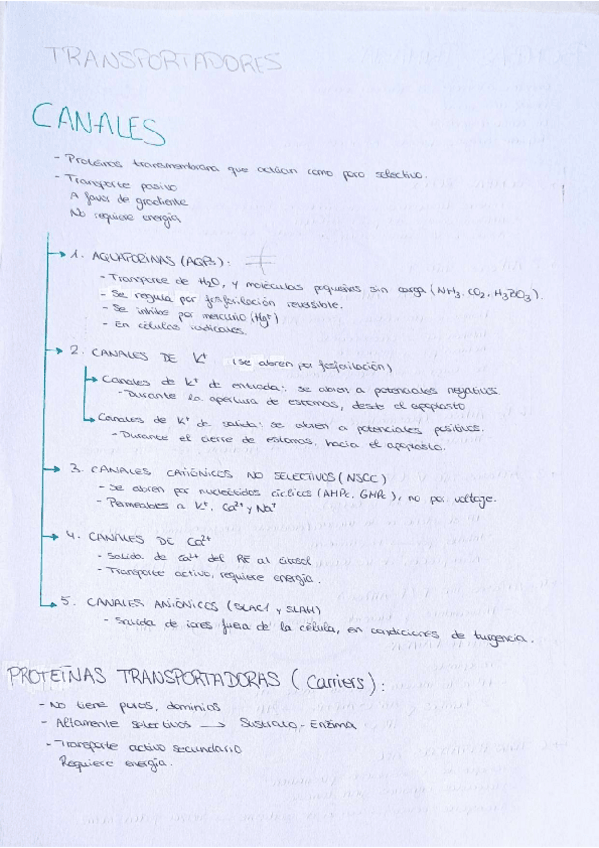 TRANSPORTADORES
CANALES
- Proteínas transmembrana que actúan como poro selectivo.
- Transporte pasivo
A favor de gradiente
No requiere energía
1. AQUAPORINAS (AQPs):
- Transporte de H2O, y moléculas pequeñas sin carga (NH3, CO2, H3BO3).
- Se regula por fosforilación reversible.
- Se inhibe por mercurio (Hg+)
- En células radicales.
2. CANALES DE K+ (se abren por fosforilación)
Canales de K+ de entrada: se abren a potenciales negativos.
- Durante la apertura de estomas, desde el apoplasto
Canales de K+ de salida: se abren a potenciales positivos.
- Durante el cierre de estomas, hacia el apoplasto.
3. CANALES CATIÓNICOS NO SELECTIVOS (NSCC)
- Se abren por nucleótidos cíclicos (AMPc, GMPc), no por voltage.
- Permeables a K+, Ca2+ y Na+
4. CANALES DE Ca2+
- Salida de Ca2+ del RE al citosol
- Transporte activo, requiere energía.
5. CANALES ANIÓNICOS (SLAC1 y SLAH)
- Salida de iones fuera de la célula, en condiciones de turgencia.
PROTEÍNAS TRANSPORTADORAS (Carriers):
- No tiene poros, dominios
- Altamente selectivos → Sustrato - Enzima
- Transporte activo secundario
Requiere energía.